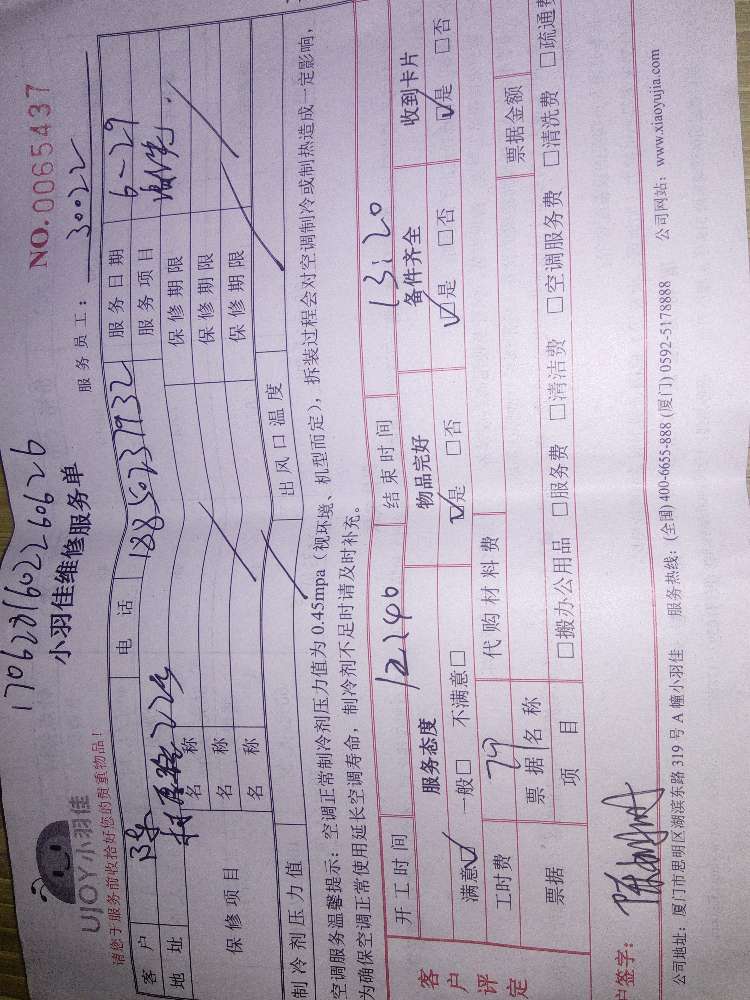 NO.0065437
小羽佳维修服务单
UJOY小羽佳
服务员工：30022
请您于服务前收拾好您的贵重物品！
客户 陈 电话 18850237932 服务日期 6-29
地址 服务项目
保修项目 名称 保修期限
名称 保修期限
名称 保修期限
制冷剂压力值 出风口温度
空调服务温馨提示：空调正常制冷剂压力值为0.45mpa（视环境、机型而定），拆装过程会对空调制冷或制热造成一定影响，
为确保空调正常使用延长空调寿命，制冷剂不足时请及时补充。
开工时间 12:40 结束时间 13:20
客户评定 服务态度 物品完好 备件齐全 收到卡片
满意☑ 一般□ 不满意□ ☑是 □否 ☑是 □否 ☑是 □否
工时费 代购材料费
票据 票据名称 票据金额
项目 □搬办公用品 □服务费 □清洁费 □空调服务费 □清洗费 □疏通费
户签字：
公司地址：厦门市思明区湖滨东路319号A幢小羽佳 服务热线：(全国)400-6655-888 (厦门)0592-5178888 公司网站：www.xiaoyujia.com